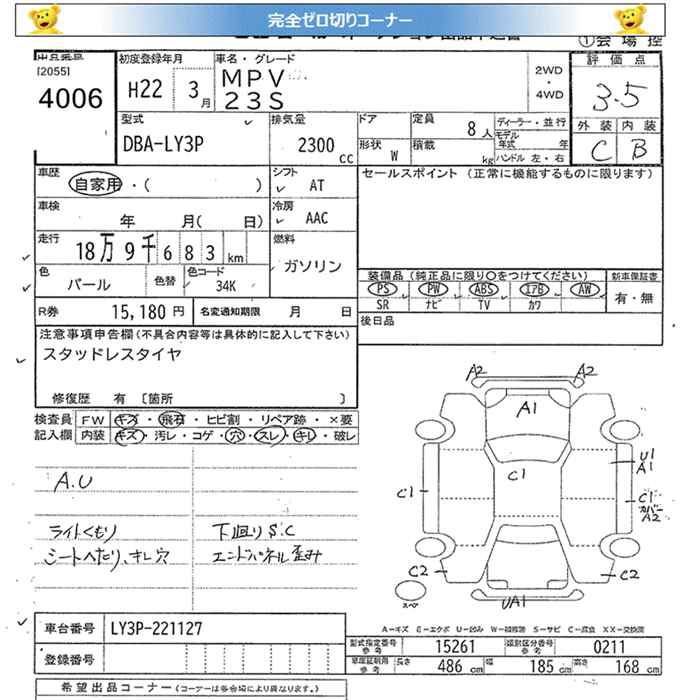 完全ゼロ切りコーナー
①会場控
[2055]
4006
初度登録年月
H22 3月
車名・グレード
MPV
23S
2WD
・
4WD
評価点
3.5
外装 内装
C B
型式
DBA-LY3P
排気量
2300 cc
ドア
定員
8人
ディーラー・並行
形状
W
積載
kg
モデル年式 年
ハンドル 左・右
車歴
自家用・( )
シフト
AT
セールスポイント (正常に機能するものに限ります)
車検
年 月( 日)
冷房
AAC
走行
18万9千683km
燃料
ガソリン
色
パール
色替
色コード
34K
装備品 (純正品に限り○をつけてください)
新車保証書
PS PW ABS エアB AW
有・無
SR ナビ TV カワ
R券
15,180円
名変通知期限 月 日
後日品
注意事項申告欄(不具合内容等は具体的に記入して下さい)
スタッドレスタイヤ
修復歴 有 [箇所 ]
検査員 FW キズ・飛石・ヒビ割・リペア跡・×要
記入欄 内装 キズ・汚レ・コゲ・穴・スレ・キレ・破レ
A.U
ライトくもり
下廻りS.C
シートへたり、キレ穴
エンドパネル歪み
A2 A2
A1
C1
C1
U1
A1
C1
カバー
A2
C2 C2
UA1
スペア
車台番号 LY3P-221127
登録番号
A-キズ E-エクボ U-凹み W-補修跡 S-サビ C-腐食 XX-交換済
型式指定番号 参考 15261 類別区分番号 参考 0211
車庫証明用 参考 長さ 486cm 幅 185cm 高さ 168cm
希望出品コーナー (コーナーは各会場により異なります)